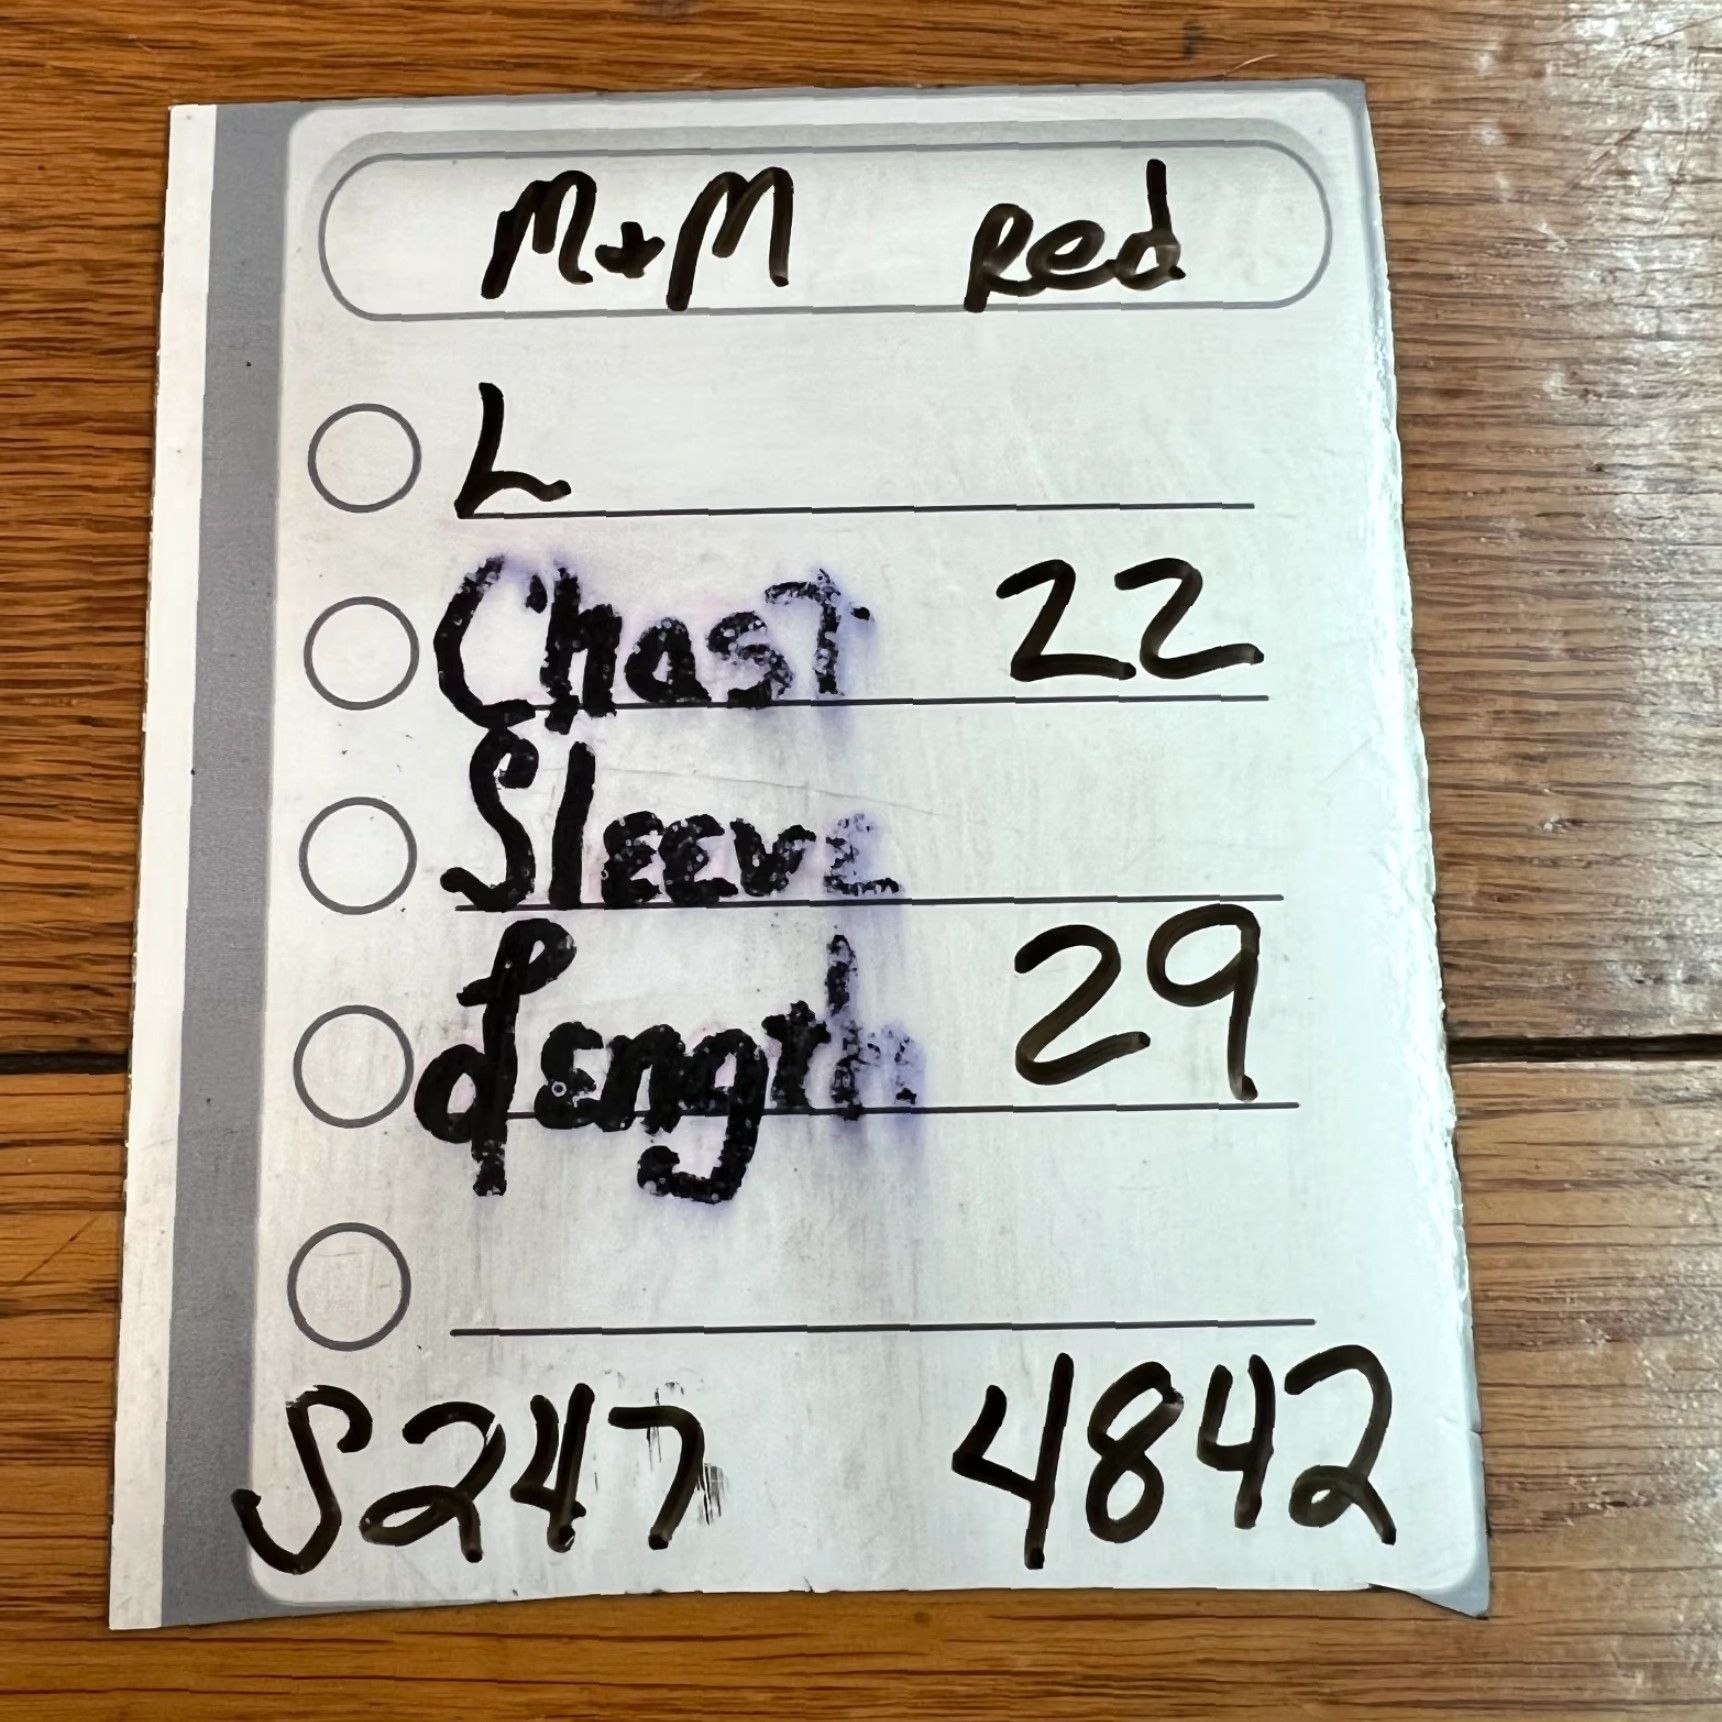 M+M Red
L
Chast 22
Sleeve
Length 29
S247 4842